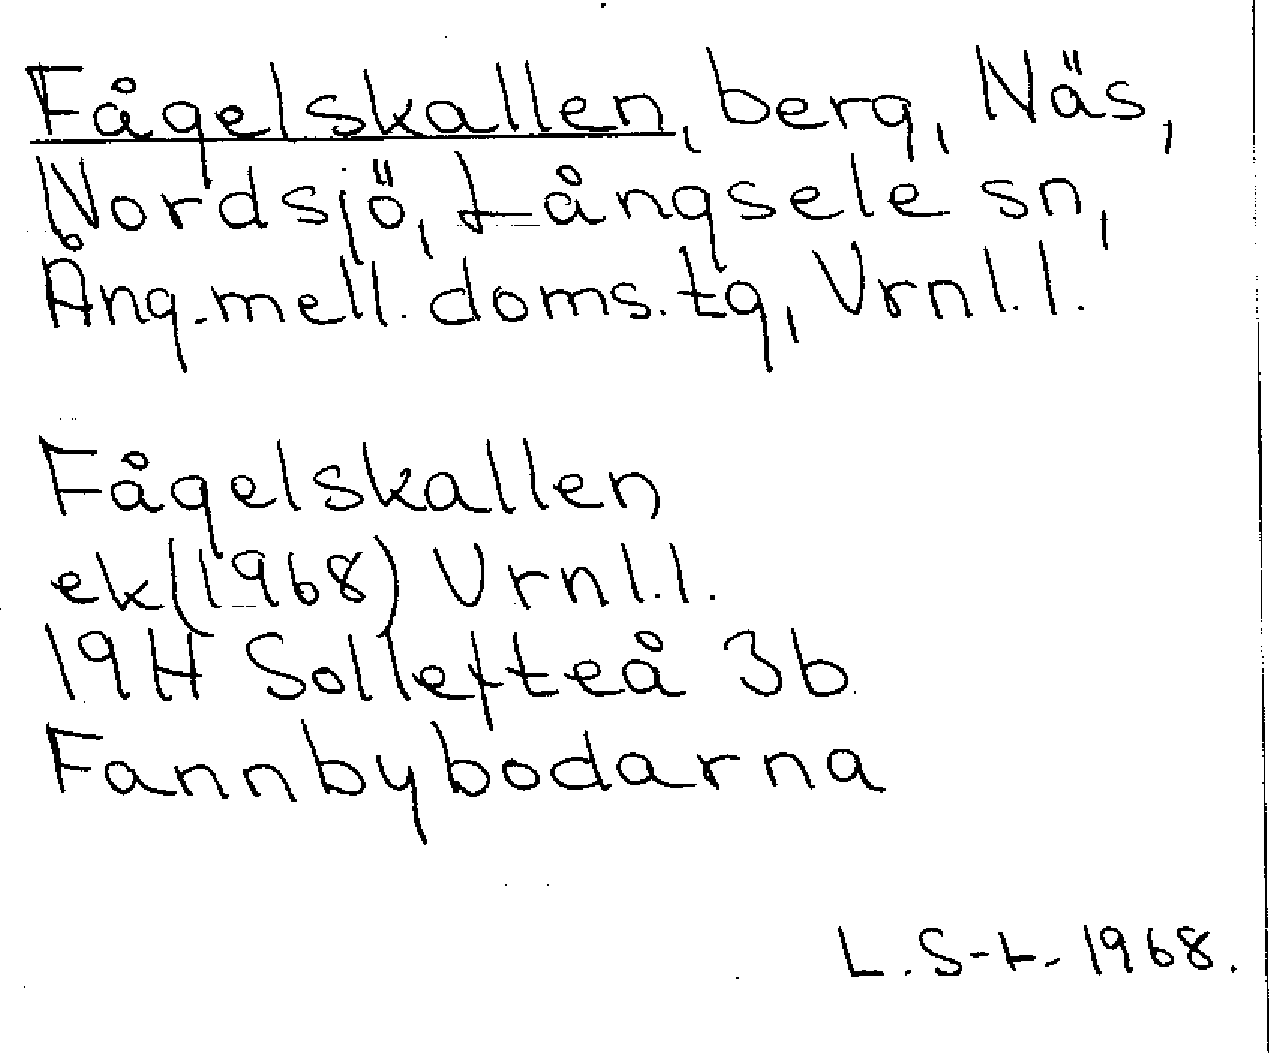 Fågelskallen, berg, Näs,
Nordsjö, Långsele sn,
Ång.mell. doms.tg, Vrnl.l.
Fågelskallen
ek(1968) Vrnl.l.
19H Sollefteå 3b
Fannbybodarna
L.S-t-1968.